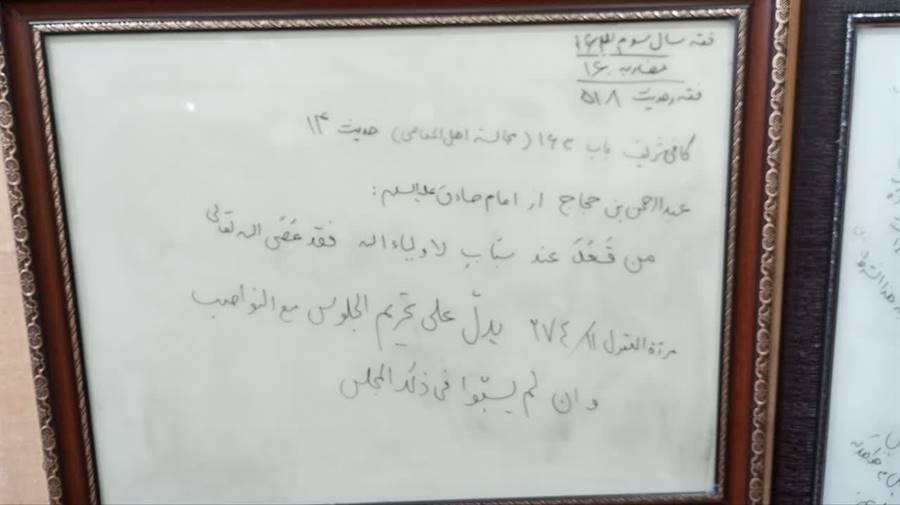 فقه سال سوم ۱۶۳
مضاربه ۱۶۰
فقه و حدیث ۵۱۸
کافی شریف باب ۱۶۳ (مجالسة اهل المعاصی) حدیث ۱۴
عبدالرحمن بن حجاج از امام صادق علیه‌السلام:
من قَعَدَ عند سبّابٍ لاولیاء الله فقد عَصَی الله تعالی
مرآة العقول ۱۱/ ۲۷۴ یدلّ علی تحریم الجلوس مع النواصب
و ان لم یسبّوا فی ذلک المجلس